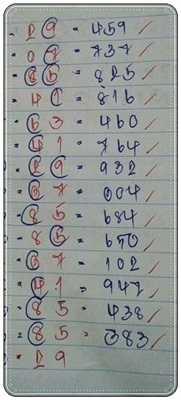 29 = 459
07 = 737
85 = 825
41 = 816
63 = 460
41 = 764
21 = 932
67 = 004
85 = 684
85 = 650
67 = 102
41 = 947
85 = 438
85 = 383
29